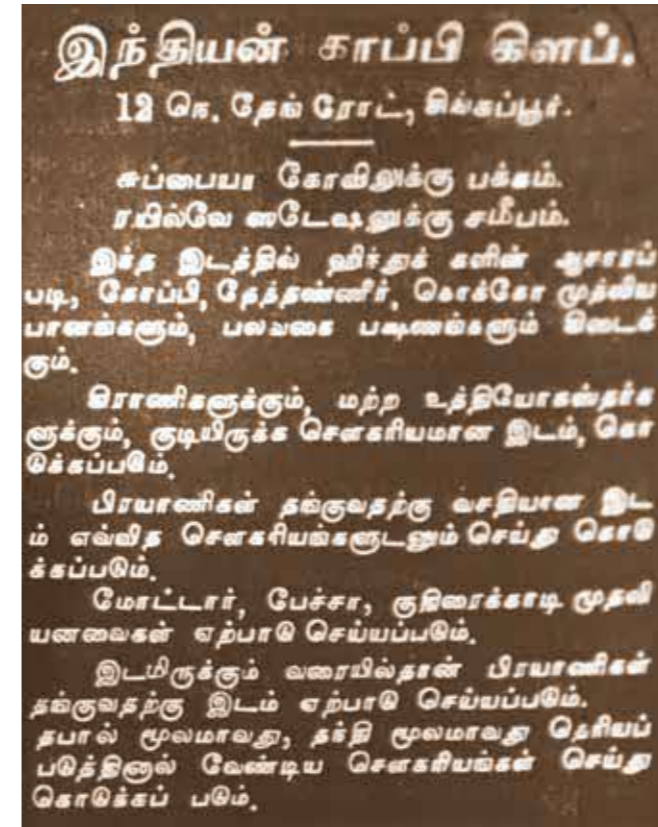 இந்தியன் காப்பி கிளப்.
12 நெ. தேங் ரோட், சிங்கப்பூர்.
சுப்பையா கோவிலுக்கு பக்கம்.
ரயில்வே ஸடேஷனுக்கு சமீபம்.
இந்த இடத்தில் ஹிந்துக் களின் ஆசாரப்
படி, கோப்பி, தேத்தண்ணீர், கொக்கோ முத்லிய
பானங்களும், பலவகை பக்ஷணங்களும் கிடைக்
கும்.
கிராணிகளுக்கும், மற்ற உத்தியோகஸ்தர்க
ளுக்கும், குடியிருக்க சௌகரியமான இடம், கொ
டுக்கப்படும்.
பிரயாணிகள் தங்குவதற்கு வசதியான இட
ம் எவ்வித சௌகரியங்களுடனும் செய்து கொடு
க்கப்படும்.
மோட்டார், பேச்சா, குதிரைக்காடி முதலி
யனவைகள் ஏற்பாடு செய்யப்படும்.
இடமிருக்கும் வரையில்தான் பிரயாணிகள்
தங்குவதற்கு இடம் ஏற்பாடு செய்யப்படும்.
தபால் மூலமாவது, தந்தி மூலமாவது தெரியப்
படுத்தினால் வேண்டிய சௌகரியங்கள் செய்து
கொடுக்கப் படும்.